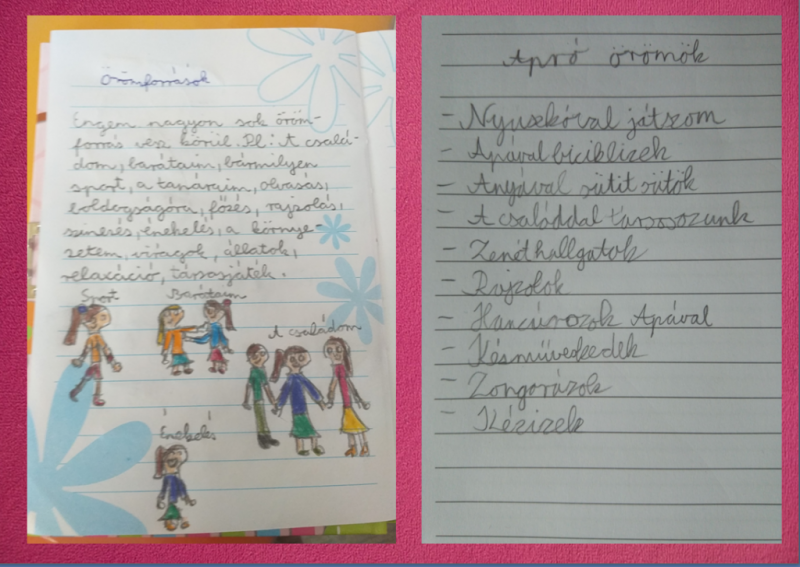 Örömforrások
Engem nagyon sok öröm-
forrás vesz körül. Pl: A csalá-
dom, barátaim, bármilyen
sport, a tanáraim, olvasás,
boldogságóra, főzés, rajzolás,
színezés, éneklés, a környe-
zetem, virágok, állatok,
relaxáció, társasjáték.
Sport
Barátaim
A családom
Éneklés
Apró örömök
- Nyusekóval játszom
- Apával biciklizek
- Anyával sütit sütök
- A családdal társasozunk
- Zenét hallgatok
- Rajzolok
- Hancúrozok Apával
- Kézművedkedek
- Zongorázok
- Kézizek